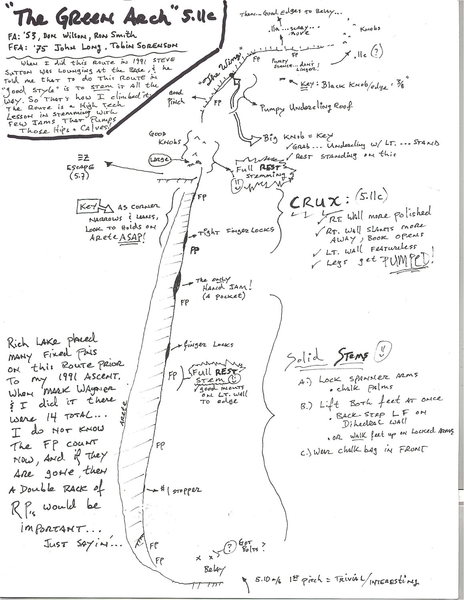 "The Green Arch" 5.11c
FA: '53, Don Wilson, Ron Smith
FFA: '75 John Long, Tobin Sorenson
When I did this Route in 1991 Steve
Sutton was lounging at the Base, & he
told me that to do this Route in
"good style" is to stem it all the
way. So that's how I climbed it!
The Route is a High Tech
Lesson in Stemming with
Few Jams That Pumps
Those Hips & Calves!
There.. Good edges to Relay...
move
Knobs
.11c (?)
Pumpy
Key: Black Knob/edge
2nd
Pinch
Pumpy Undercling Roof
Big Knob = Key
Grab... Undercling w/ LT. ... Stand
Rest standing on this
Good
Knobs
Loose
EZ
Escape
(5.7)
Full REST
stemming
FP
Key
As corner
narrows & leans,
look to holds on
arete ASAP!
CRUX: (5.11c)
RT Wall more polished
RT. Wall slants more
away, Book opens
LT. Wall featureless
Legs get PUMPED!
Tight finger locks
FP
The only
Hand Jam!
(A pocket)
FP
Finger Locks
FP
Full REST
Stem
good mounts
on LT. Wall
to edge
arete
Rich Lake placed
many fixed pins
on this Route prior
to my 1991 ascent.
When Mark Wagner
& I did it there
were 14 total...
I do not know
The FP count
now, and if they
are gone, then
A Double Rack of
RP's would be
important...
Just Sayin'...
Solid Stems
A.) Lock spanner arms
• chalk palms
B.) Lift Both feet at once
• Back step LF on
Dihedral Wall
• or walk feet up on locked arms
C.) Wear chalk bag in front
FP
#1 stopper
FP
FP
(?) Got
Bolts?
x x
Belay
5.10 1st pitch = Trivial/Interesting